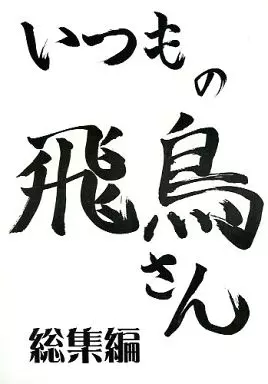 いつもの
飛鳥さん
総集編